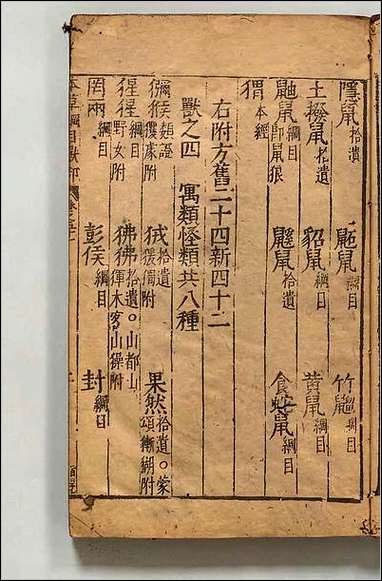 隱鼠拾遺 鼫鼠綱目 竹䶉綱目
土撥鼠拾遺 貂鼠綱目 黃鼠綱目
鼬鼠綱目即鼠狼 鼷鼠拾遺 食蛇鼠綱目
猬本經
右附方舊二十四新四十二
獸之四 寓類怪類共八種
獼猴類證玃㺉附 狨拾遺猨獨附 果然拾遺○蒙頌獑猢附
猩猩綱目野女附 狒狒拾遺○山都山𤟤木客山𤢖附
罔兩綱目 彭侯綱目 封綱目
本草綱目獸部